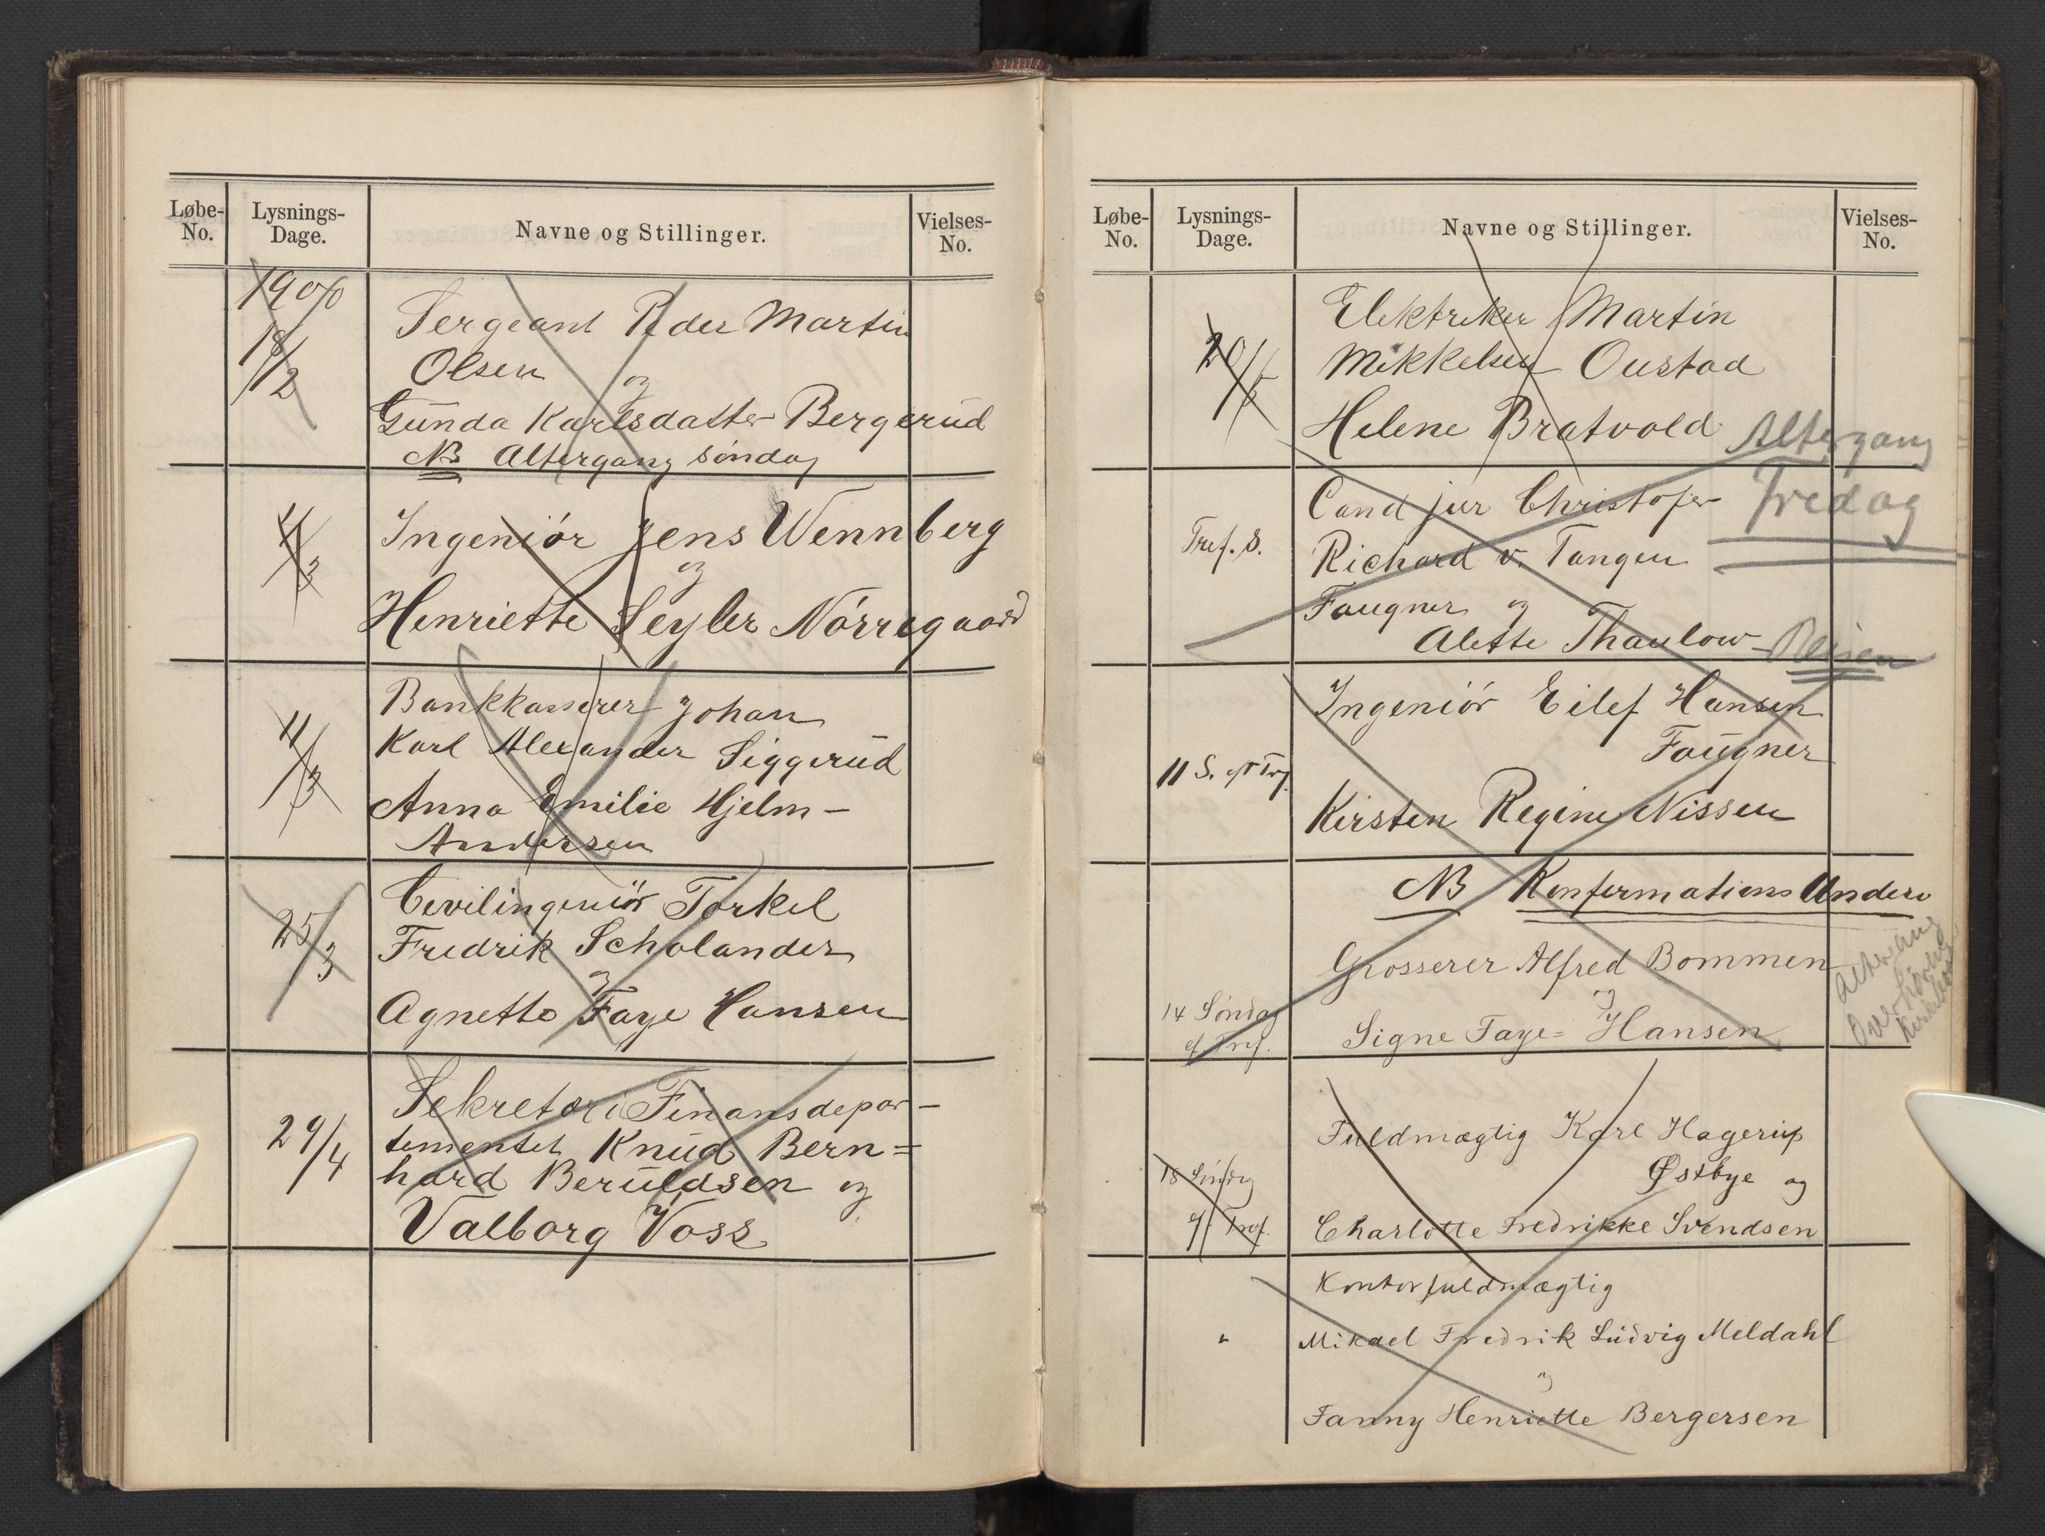 Løbe-No.
Lysnings-Dage.
Navne og Stillinger.
Vielses-No.
1900
18/2
Sergeant Peder Martin
Olsen og
Gunda Karlsdatter Bergerud
NB Altergang søndag
4/3
Ingeniør Jens Wennberg
og
Henriette Seyler Nørregaard
11/3
Bankkasserer Johan
Karl Alexander Siggerud
Anna Emilie Hjelm-
Andersen
25/3
Civilingeniør Torkel
Fredrik Scholander
og
Agnette Faye Hansen
29/4
Sekretær i Finansdepar-
tementet Knud Bern=
hard Beruldsen og
Valborg Voss
Løbe-No.
Lysnings-Dage.
Navne og Stillinger.
Vielses-No.
20/5
Elektriker Martin
Mikkelsen Oustad
Helene Bratvold
Altergang
Fredag
Tref. S.
Cand jur Christofer
Richard v. Tangen
Faugner og
Alette Thaulow
Ingeniør Eilef Hansen
Faugner
11 S. eft Trf.
Kirsten Regine Nissen
NB Konfirmations Underv
Grosserer Alfred Bommen
og
14 Søndag
ef Tref.
Signe Faye=Hansen
Fuldmægtig Karl Hagerup
Østbye og
18 Søndg
ef Tref.
Charlotte Fredrikke Svendsen
Kontorfuldmægtig
"
Mikael Fredrik Ludvig Meldahl
og
Fanny Henriette Bergersen